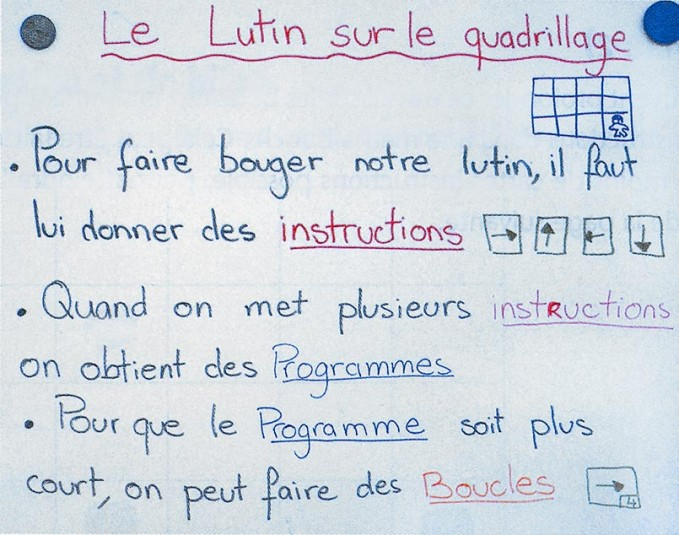 Le Lutin sur le quadrillage
• Pour faire bouger notre lutin, il faut
lui donner des instructions → ↑ ← ↓
• Quand on met plusieurs instructions
on obtient des Programmes
• Pour que le Programme soit plus
court, on peut faire des Boucles → 4